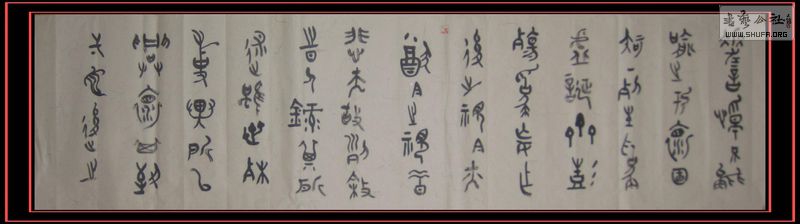 书艺公社
WWW.SHUFA.ORG
嗟悼不能
喻之於懷固
知一死生為
虛誕齊彭
殤為妄作
後之視今亦
猶今之視昔
悲夫故列敘
時人錄其所
述雖世殊
事異所以
興懷其致
弌也後之